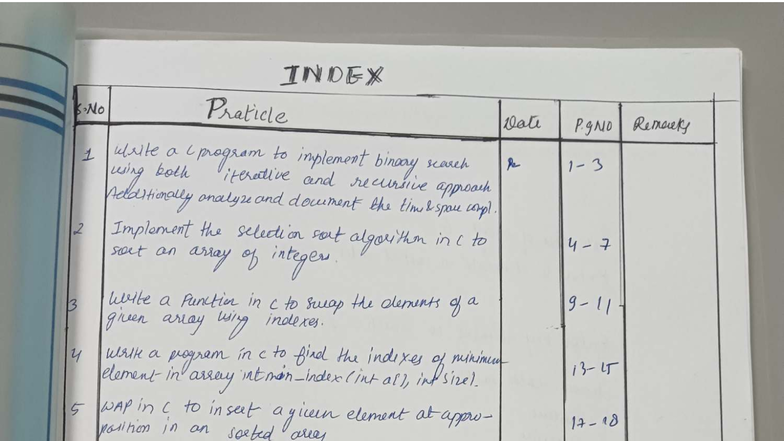 INDEX
S.No Praticle Date P.gNO Remarks
1 Write a C program to implement binary search 1-3
using both iterative and recursive approach
Additionally analyze and document the time & space compl.
2 Implement the selection sort algorithm in C to
sort an array of integers. 4-7
3 Write a function in C to swap the elements of a 9-11
given array using indexes.
4 Write a program in C to find the indexes of minimum
element in array int min_index(int a[], int size). 13-15
5 WAP in C to insert a given element at appro-
position in an sorted array 17-18